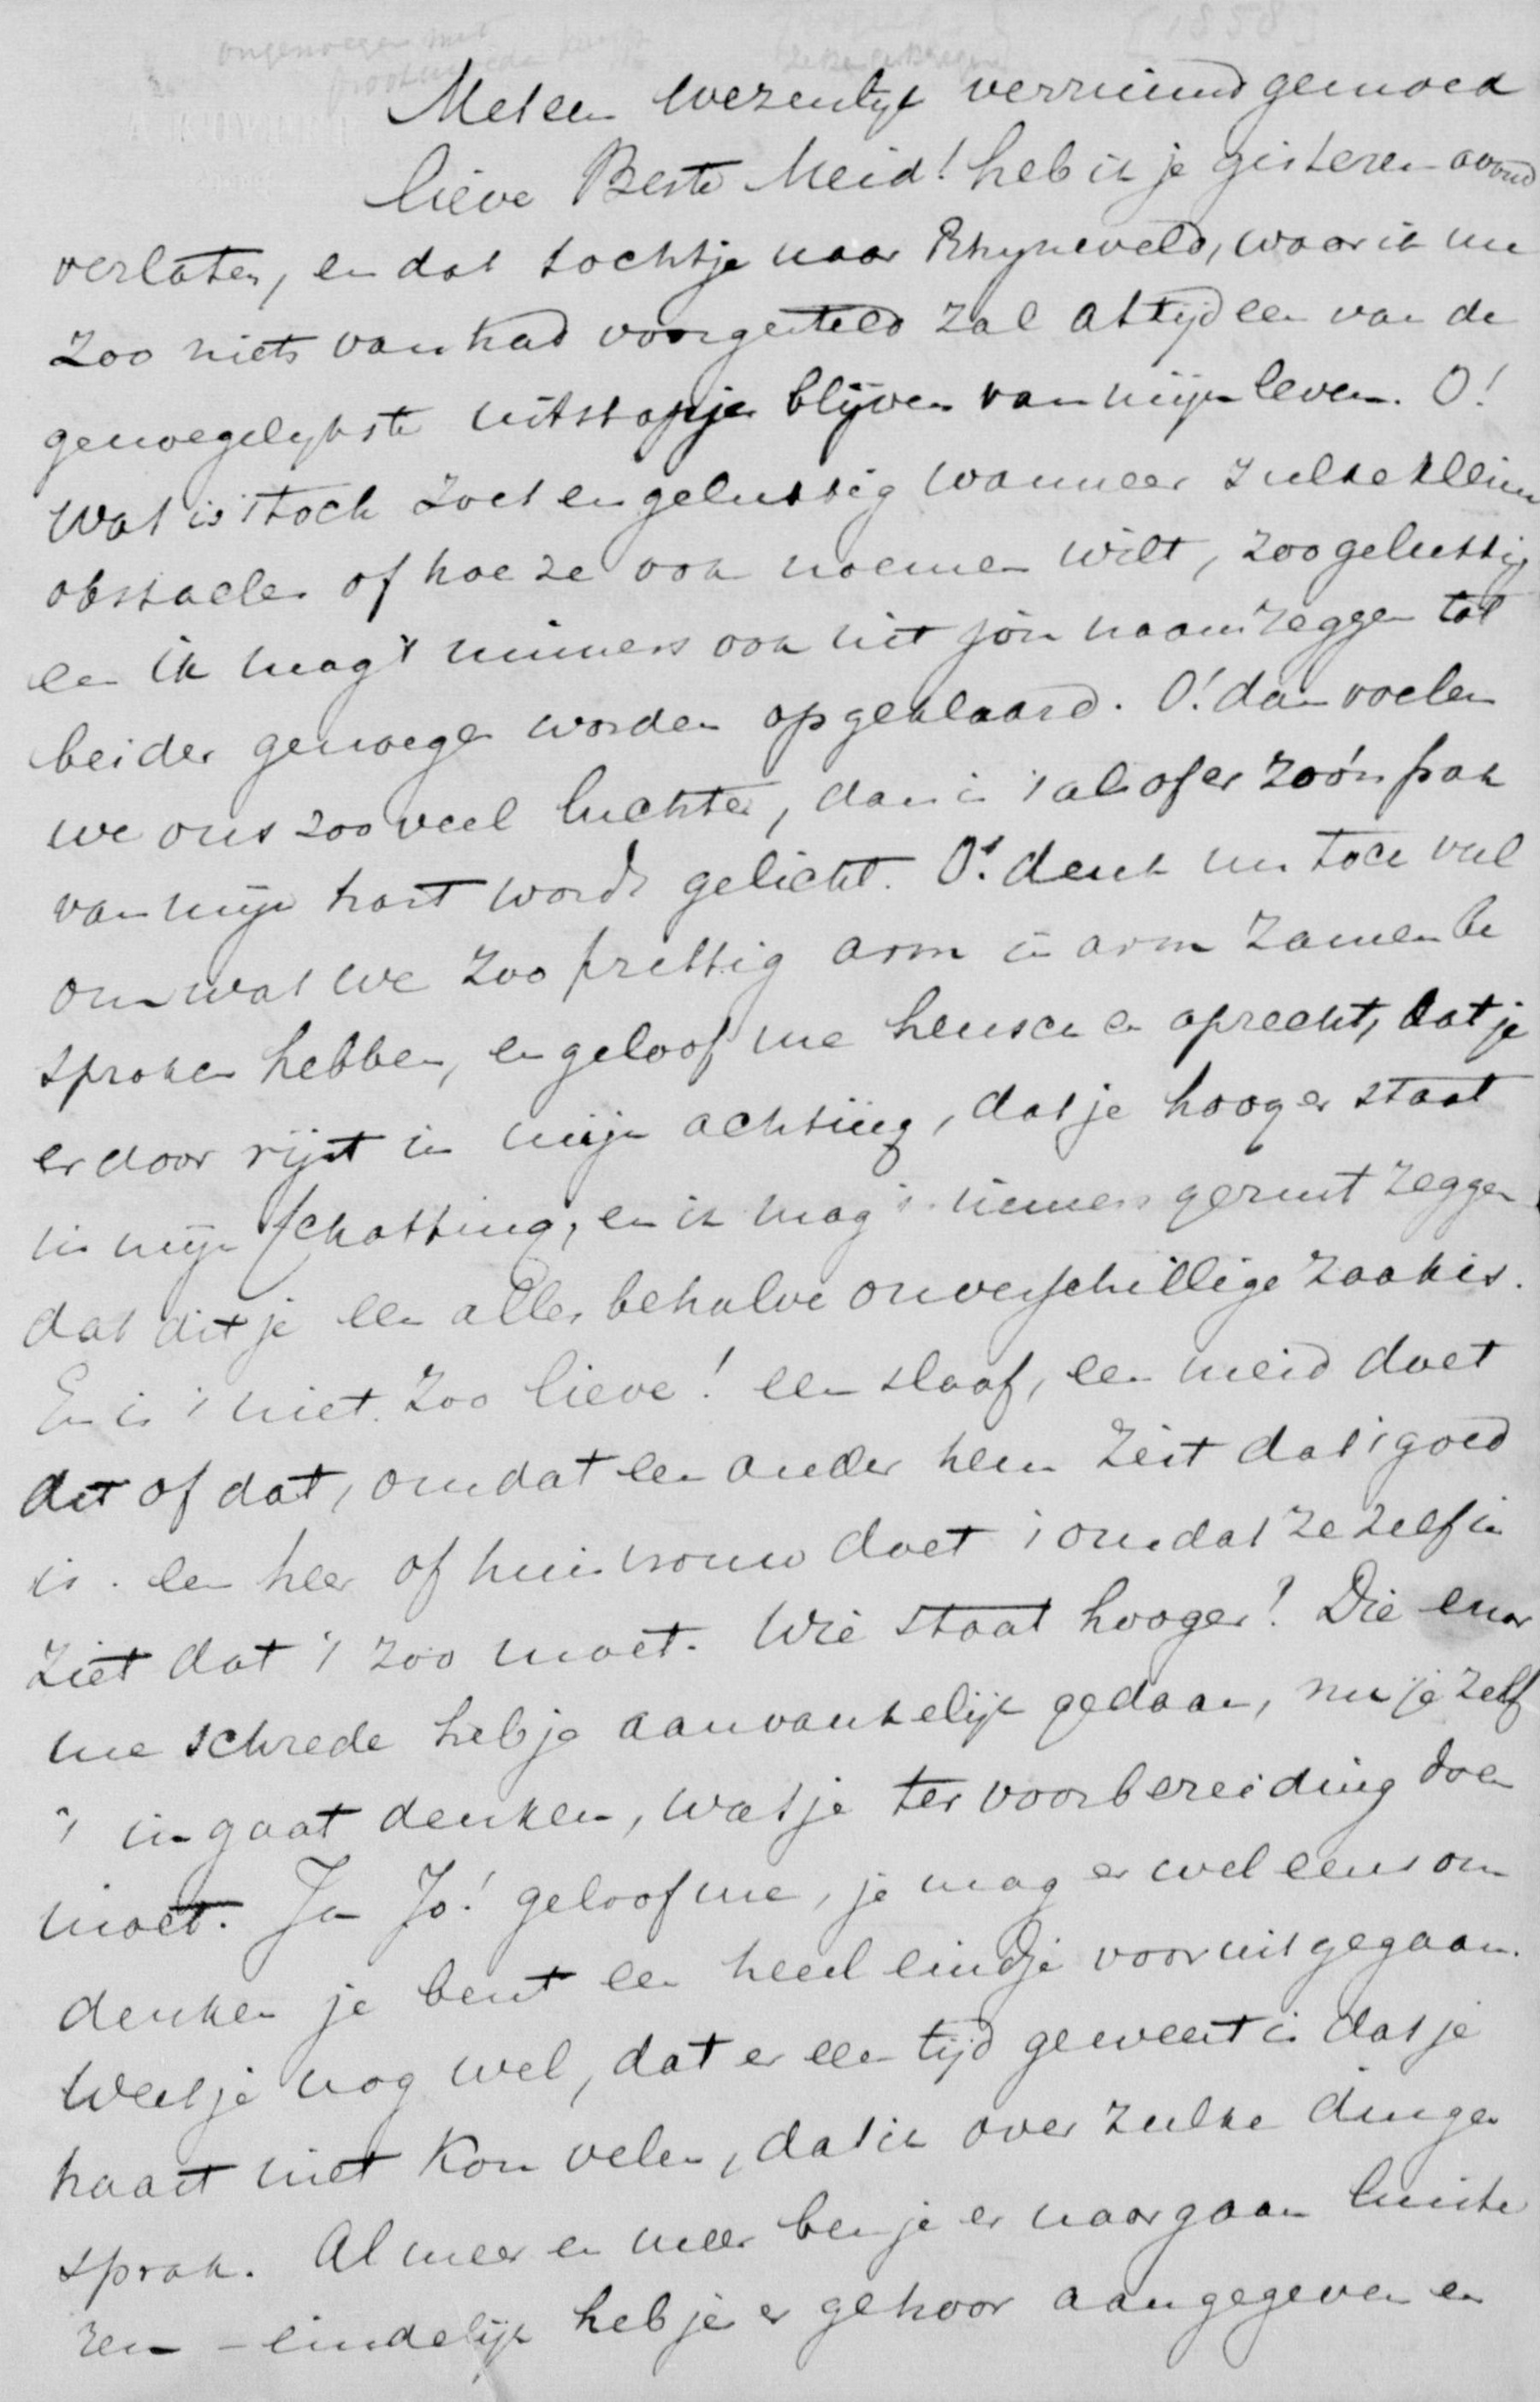 ongenoegen met
[1858]
Met een wezentlijk verruimd gemoed
lieve Beste Meid! heb ik je gisteren avond
verlaten, en dat tochtje naar Rhijneveld, waar ik me
zoo niets van had voorgesteld zal altijd een van de
genoegelykste uitstapjes blijven van mijn leven. O!
Wat is 't toch zoet en gelukkig wanneer zulke kleine
obstacles of hoe ze ook noemen wilt, zoo gelukkig
en ik mag 't immers ook uit jou naam zeggen tot
beider genoegen worden opgeklaard. O! dan voelen
we ons zooveel luchter, dan is 't als of er zoo'n pak
van mijn hart wordt gelicht. O! denk nu toch veel
om wat we zoo prettig arm in arm zamen be
sproken hebben, en geloof me heusch en oprecht, dat je
er door rijst in mijn achting, dat je hooger staat
in mijn schatting, en ik mag 't immers gerust zeggen
dat dit je een alles behalve onverschillige zaak is.
En is 't niet zoo lieve! een slaaf, een meid doet
dit of dat, omdat een ander hem zeit dat 't goed
is. een heer of huisvrouw doet 't omdat ze zelf in
ziet dat 't zoo moet. Wie staat hooger? Die enor
me schrede heb je aanvankelijk gedaan, nu je zelf
't in gaat denken, wat je ter voorbereiding doen
moet. Ja Jo! geloof me, je mag er wel eens om
denken je bent een heel eindje vooruitgegaan.
Weet je nog wel, dat er een tijd geweest is dat je
haast niet kon velen, dat ik over zulke dingen
sprak. Al meer en meer ben je er naar gaan luiste
ren – eindelijk heb je er gehoor aan gegeven en